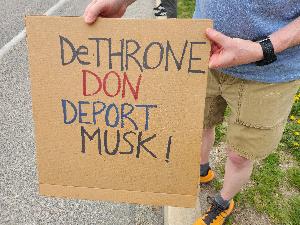 DeTHRONE
DON
DEPORT
MUSK!